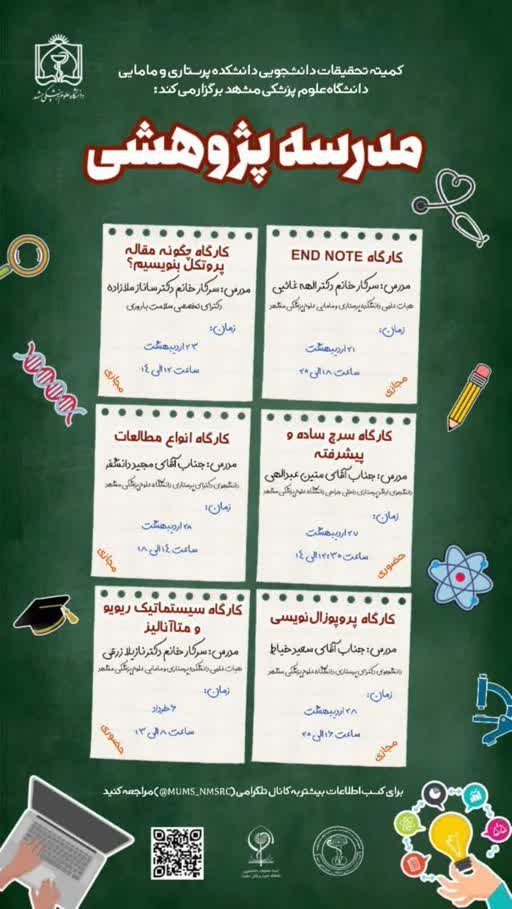 کمیته تحقیقات دانشجویی دانشکده پرستاری و مامایی
دانشگاه علوم پزشکی مشهد برگزار می کند:
مدرسه پژوهشی
کارگاه END NOTE
مدرس: سرکار خانم دکتر الهه غائبی
هیات علمی دانشکده پرستاری و مامایی علوم پزشکی مشهد
زمان:
۲۱ اردیبهشت
ساعت ۱۸ الی ۲۰
مجازی
کارگاه چگونه مقاله
پروتکل بنویسیم؟
مدرس: سرکار خانم دکتر ساناز ملازاده
دکترای تخصصی سلامت باروری
زمان:
۲۳ اردیبهشت
ساعت ۱۲ الی ۱۴
مجازی
کارگاه سرچ ساده و
پیشرفته
مدرس: جناب آقای متین عبدالهی
دانشجوی ارشد پرستاری داخلی جراحی دانشگاه علوم پزشکی مشهد
زمان:
۲۷ اردیبهشت
ساعت ۱۲:۳۰ الی ۱۴
حضوری
کارگاه انواع مطالعات
مدرس: جناب آقای مجید دانشفر
دانشجوی دکترای پرستاری دانشگاه علوم پزشکی مشهد
زمان:
۲۸ اردیبهشت
ساعت ۱۴ الی ۱۸
مجازی
کارگاه پروپوزال نویسی
مدرس: جناب آقای سعید خیاط
دانشجوی دکترای پرستاری دانشگاه علوم پزشکی مشهد
زمان:
۲۸ اردیبهشت
ساعت ۱۶ الی ۲۰
مجازی
کارگاه سیستماتیک ریویو
و متاآنالیز
مدرس: سرکار خانم دکتر نازیلا زرغی
هیات علمی دانشکده پرستاری و مامایی علوم پزشکی مشهد
زمان:
۶ خرداد
ساعت ۸ الی ۱۳
حضوری
برای کسب اطلاعات بیشتر به کانال تلگرامی (@MUMS_NMSRC) مراجعه کنید